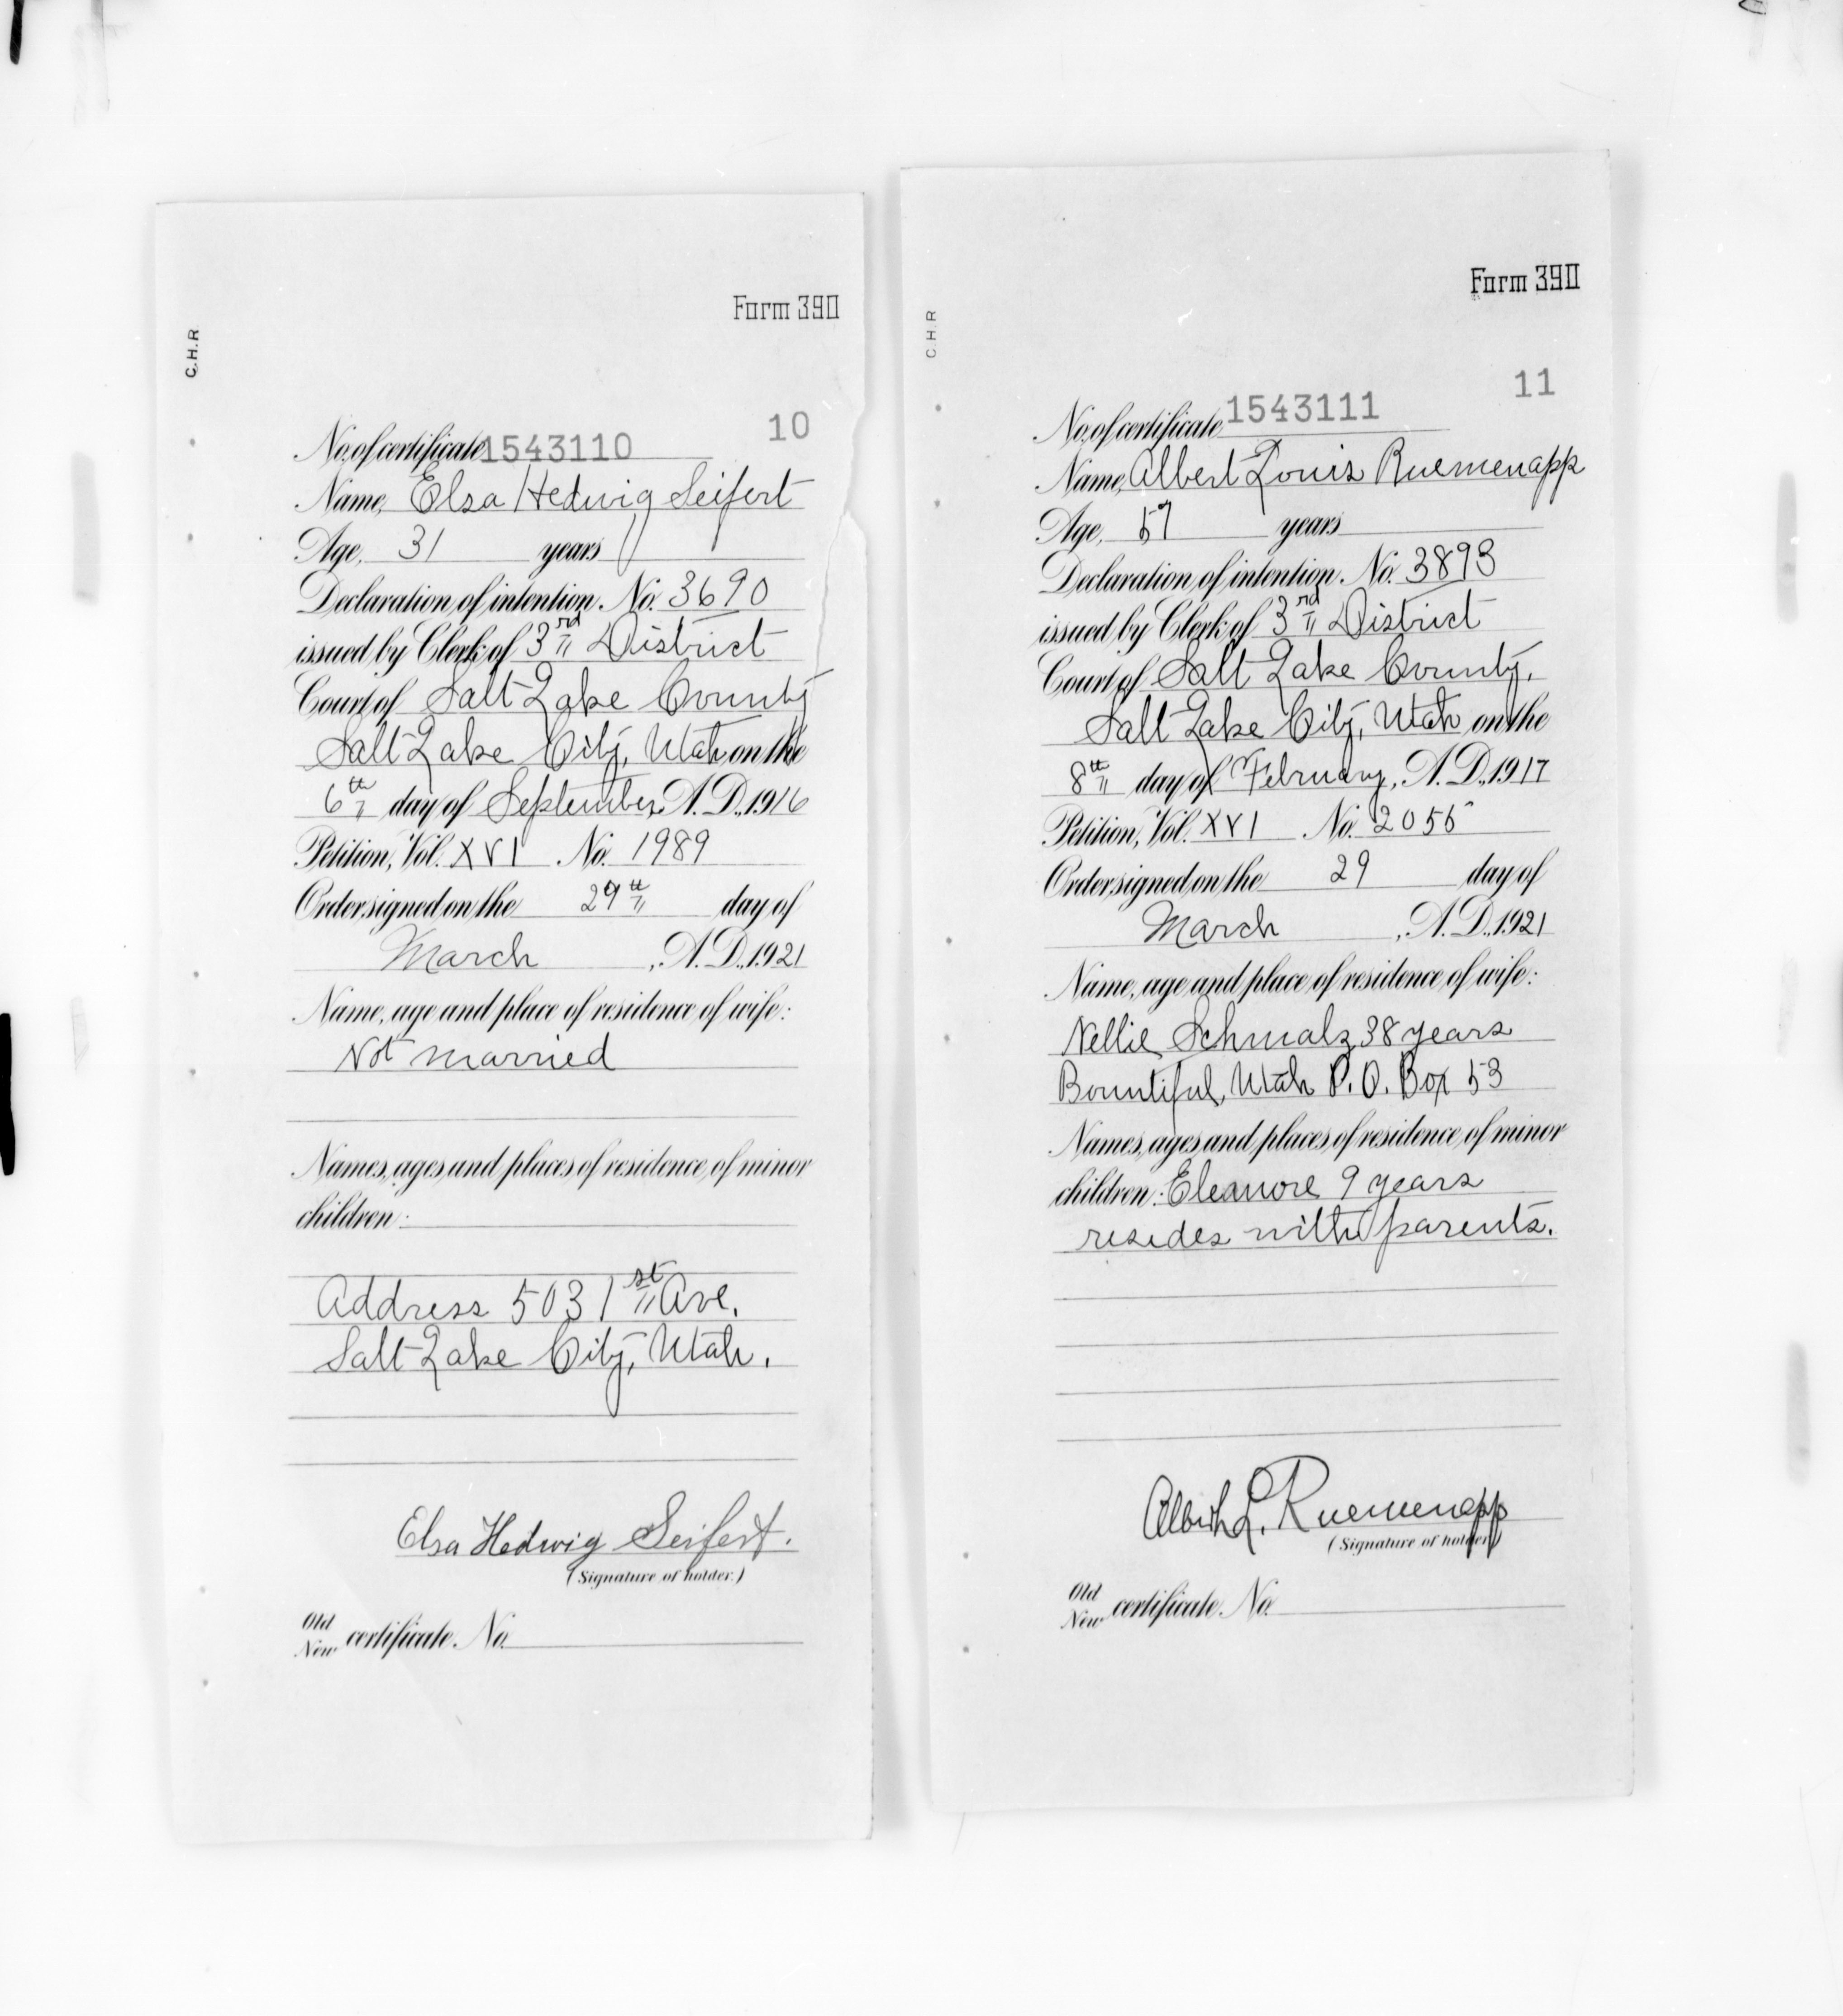 Form 390
C.H.R
10
No. of certificate 1543110
Name, Elsa Hedwig Seifert
Age, 31 years
Declaration of intention. No. 3690
issued by Clerk of 3rd District
Court of Salt Lake County
Salt Lake City, Utah on the
6th day of September, A.D., 1916
Petition, Vol. XVI No. 1989
Order signed on the 29th day of
March, A.D., 1921
Name, age and place of residence of wife:
Not married
Names, ages and places of residence of minor
children:
Address 503 1st Ave.
Salt Lake City, Utah.
Elsa Hedwig Seifert.
(Signature of holder.)
Old
New certificate. No.
Form 390
C.H.R
11
No. of certificate 1543111
Name, Albert Louis Ruemenapp
Age, 57 years
Declaration of intention. No. 3893
issued by Clerk of 3rd District
Court of Salt Lake County.
Salt Lake City, Utah on the
8th day of February, A.D., 1917
Petition, Vol. XVI No. 2055
Order signed on the 29 day of
March, A.D., 1921
Name, age and place of residence of wife:
Nellie Schmalz 38 years
Bountiful, Utah P.O. Box 53
Names, ages and places of residence of minor
children: Eleanore 9 years
resides with parents.
Albert L. Ruemenapp
(Signature of holder.)
Old
New certificate. No.